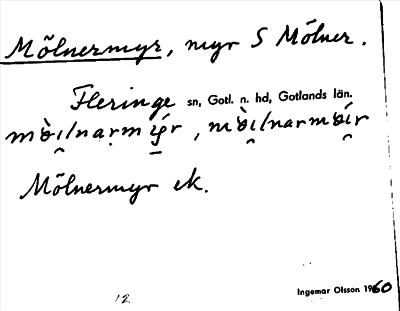 Mölnermyr, myr S Mölner.
Fleringe sn, Gotl. n. hd, Gotlands län.
Mölnermyr ek.
Ingemar Olsson 1960
12